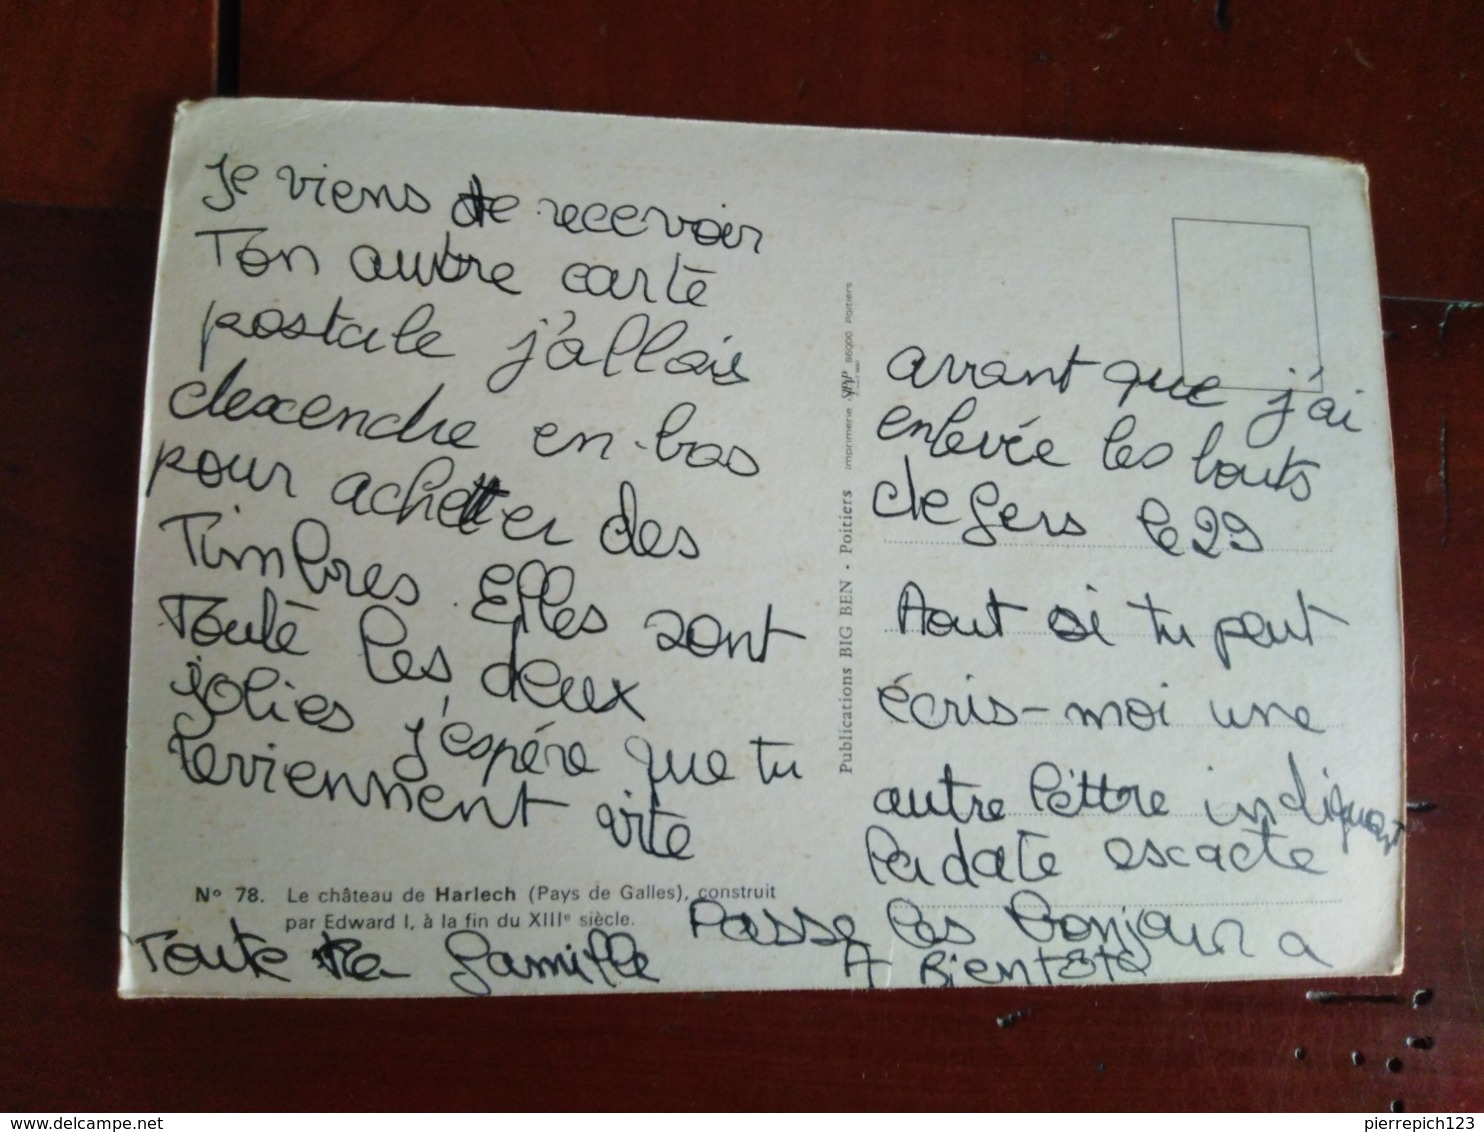 Je viens de recevoir
Ton autre carte
postale j'allais
descendre en bas
pour achetter des
Timbres Elles sont
Toute les deux
jolies j'espére que tu
reviennent vite
No 78. Le château de Harlech (Pays de Galles), construit
par Edward I, à la fin du XIIIe siècle.
Publications BIG BEN · Poitiers imprimerie 86000 Poitiers
avant que j'ai
enlevée les bouts
de fers le 29
Aout si tu peut
écris-moi une
autre lettre indiquant
la date escacte
Passe les bonjour a
Toute ta famille
A Bientôt
delcampe.net
pierrepich123